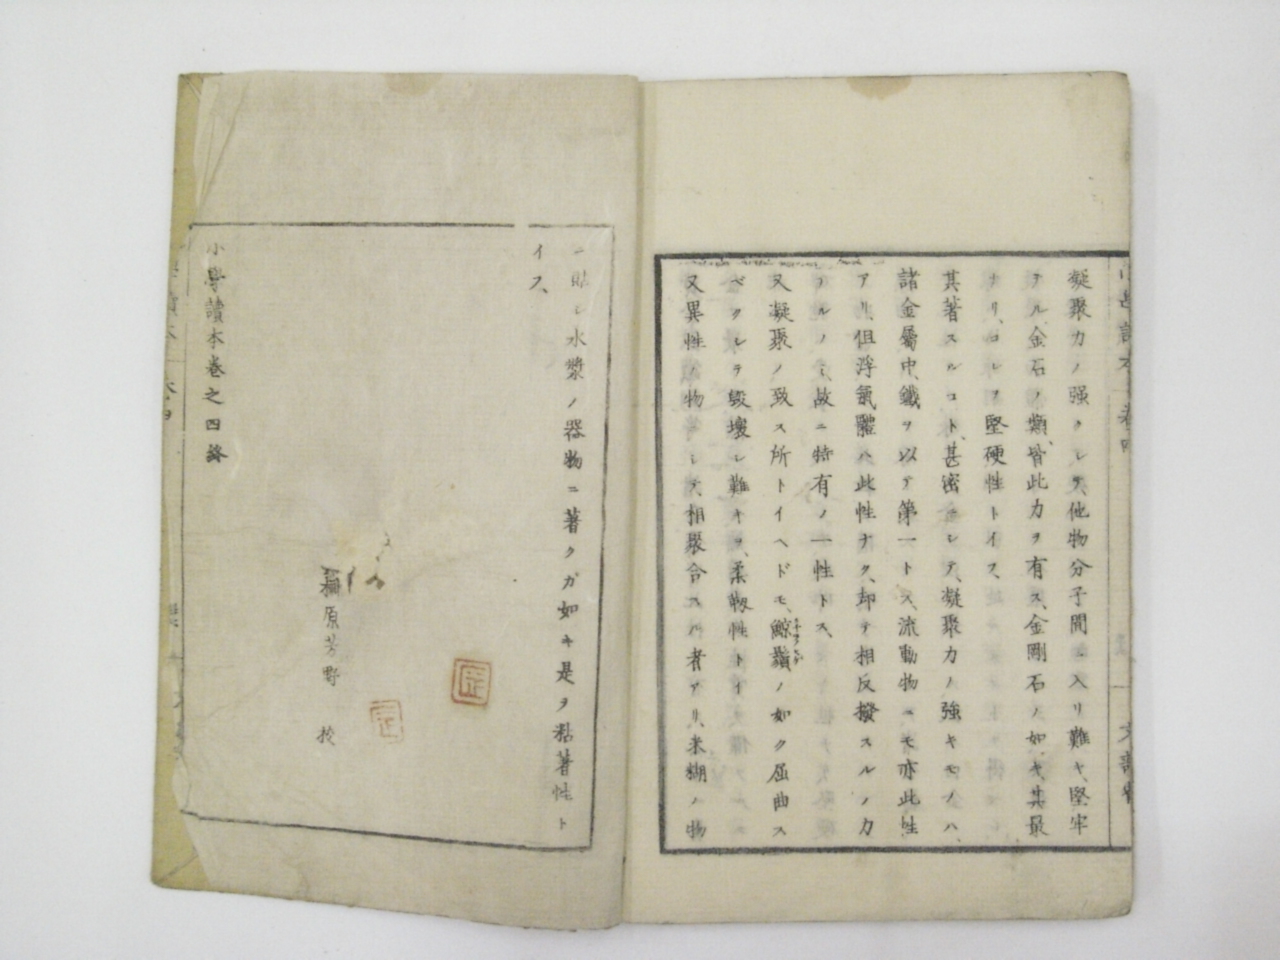 凝聚力ノ強クシテ、他物分子間ニ入リ難キ、堅牢
ナル金石ノ類、皆此力ヲ有ス、金剛石ノ如キ、其最
ナリ、コレヲ堅硬性トイス、
其著スルコト、甚密ニシテ、凝聚力ノ強キモノハ、
諸金屬中、鐵ヲ以テ第一トス、流動物ニモ亦此性
アリ、但浮氣體ハ此性ナク、却テ相反撥スルノ力
アルノミ、故ニ特有ノ一性トス、
又凝聚ノ致ス所トイヘドモ、鯨鬚ノ如ク屈曲ス
ベクシテ毀壞シ難キヲ、柔靱性トイフ、
又異性ノ物ニシテ、相聚合スル者アリ、米糊ノ物
ニ貼シ水漿ノ器物ニ著クガ如キ是ヲ黏著性ト
イス、
原芳野 校
小學讀本卷之四終